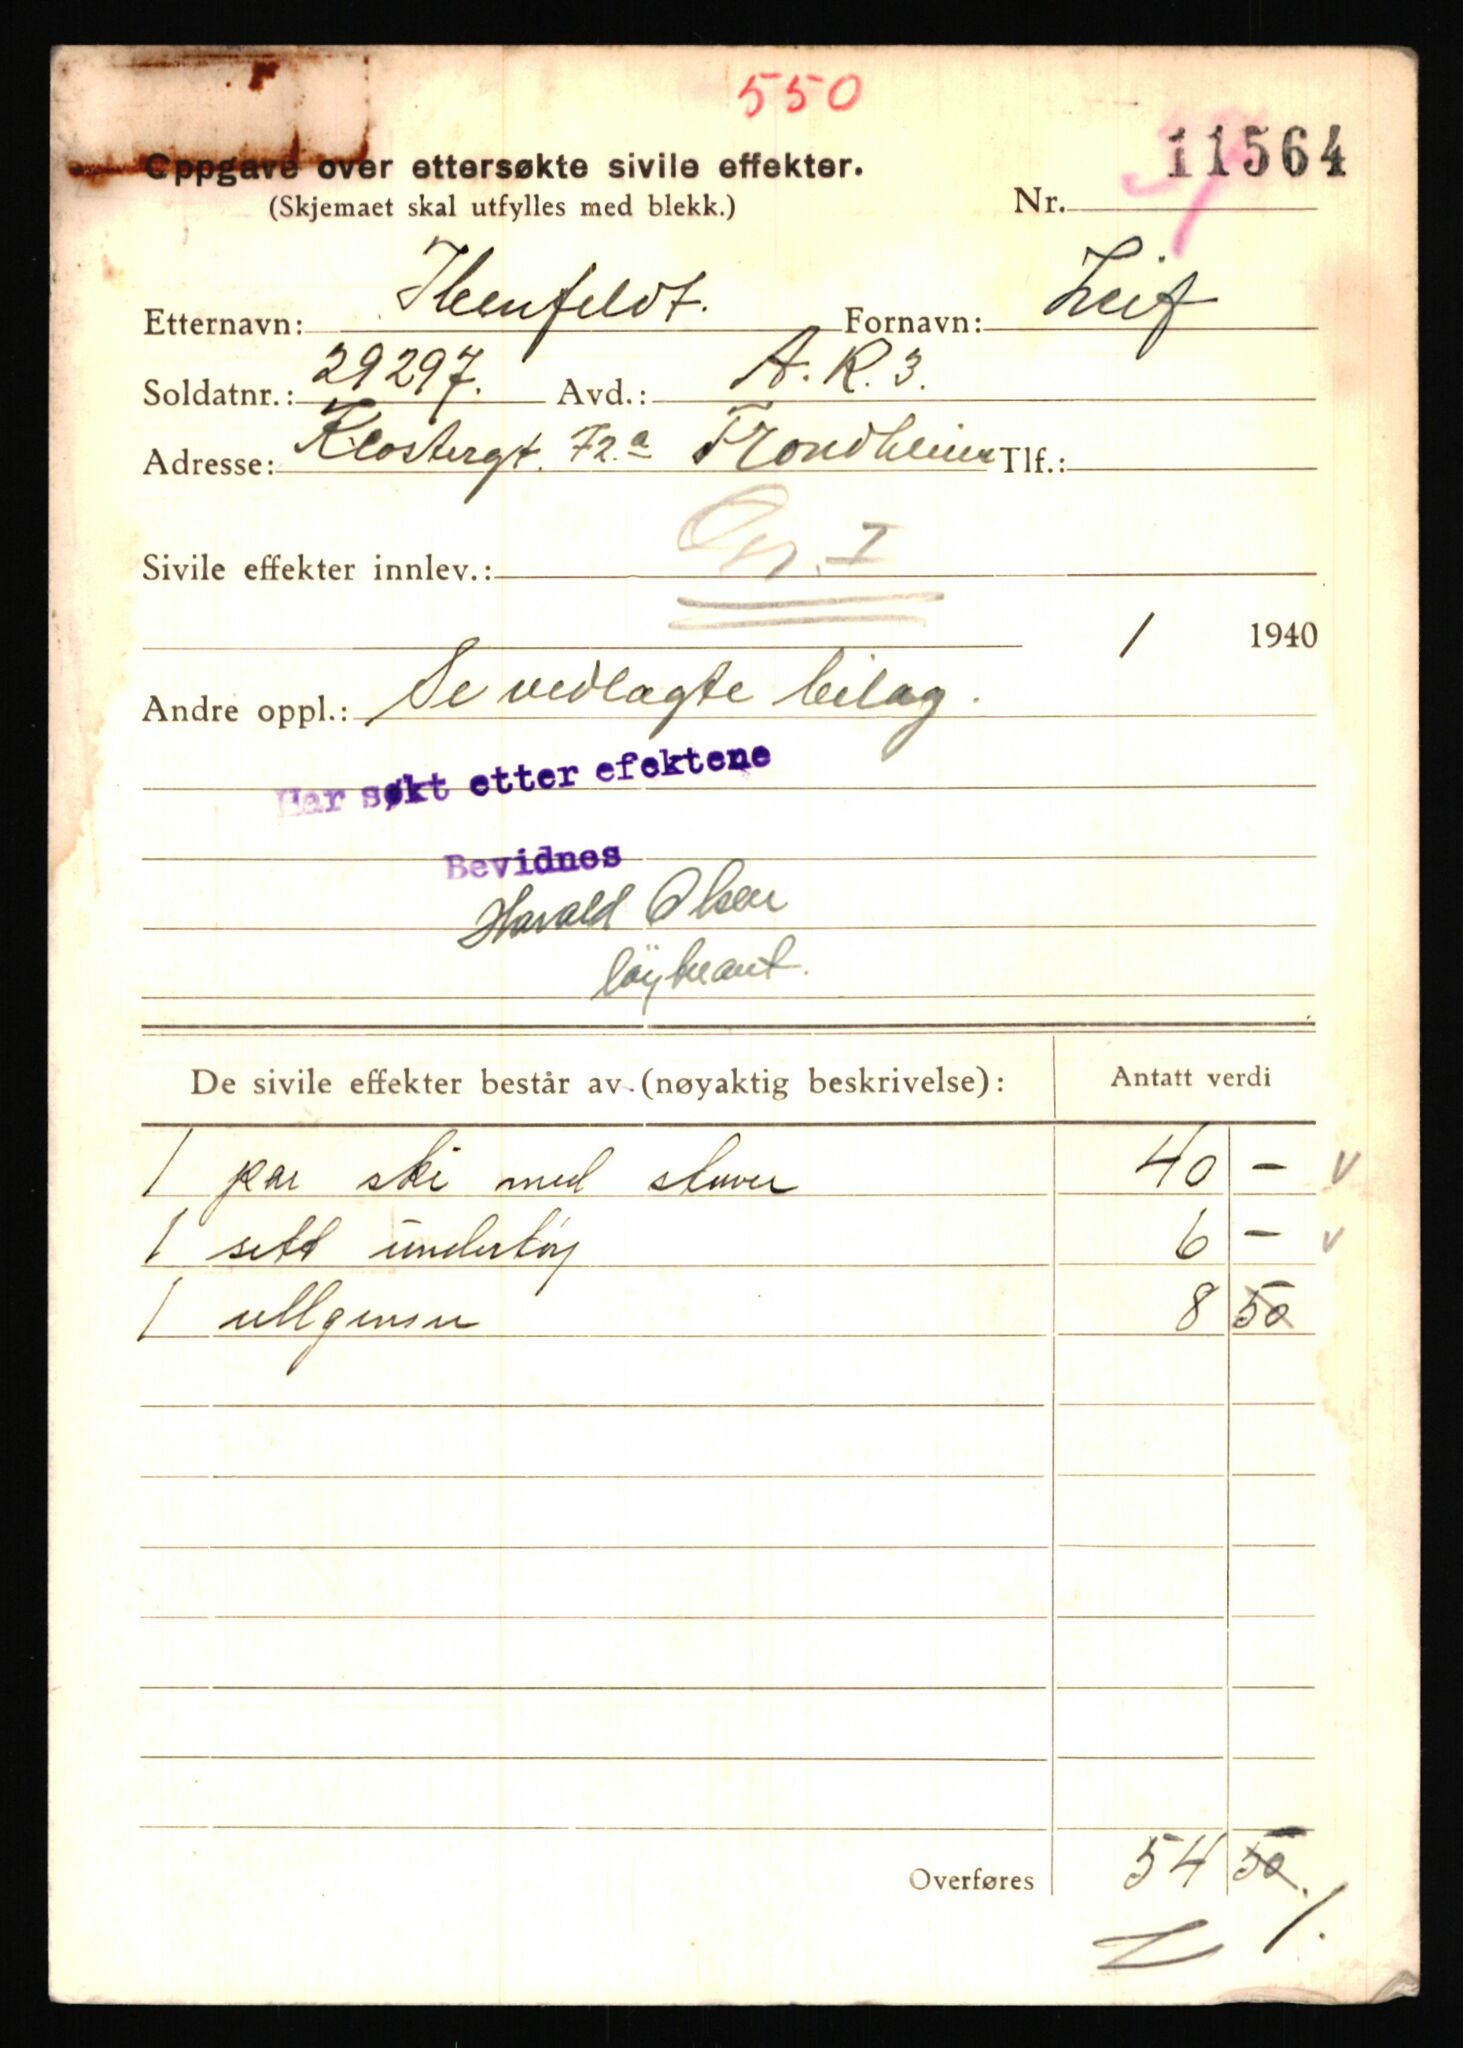 550
11564
Oppgave over ettersøkte sivile effekter.
(Skjemaet skal utfylles med blekk.) Nr.
Etternavn: Ibenfeldt. Fornavn: Leif
Soldatnr.: 29297. Avd.: A. R. 3.
Adresse: Klostergt. 72a Trondheim Tlf.:
Sivile effekter innlev.: Gr. I
/ 1940
Andre oppl.: Se vedlagte bilag.
Har søkt etter efektene
Bevidnes
Harald Olsen
løytnant.
De sivile effekter består av (nøyaktig beskrivelse): Antatt verdi
1 par ski med staver 40 – v
1 sett undertøy 6 – v
1 ullgenser 8 50
Overføres 54 50